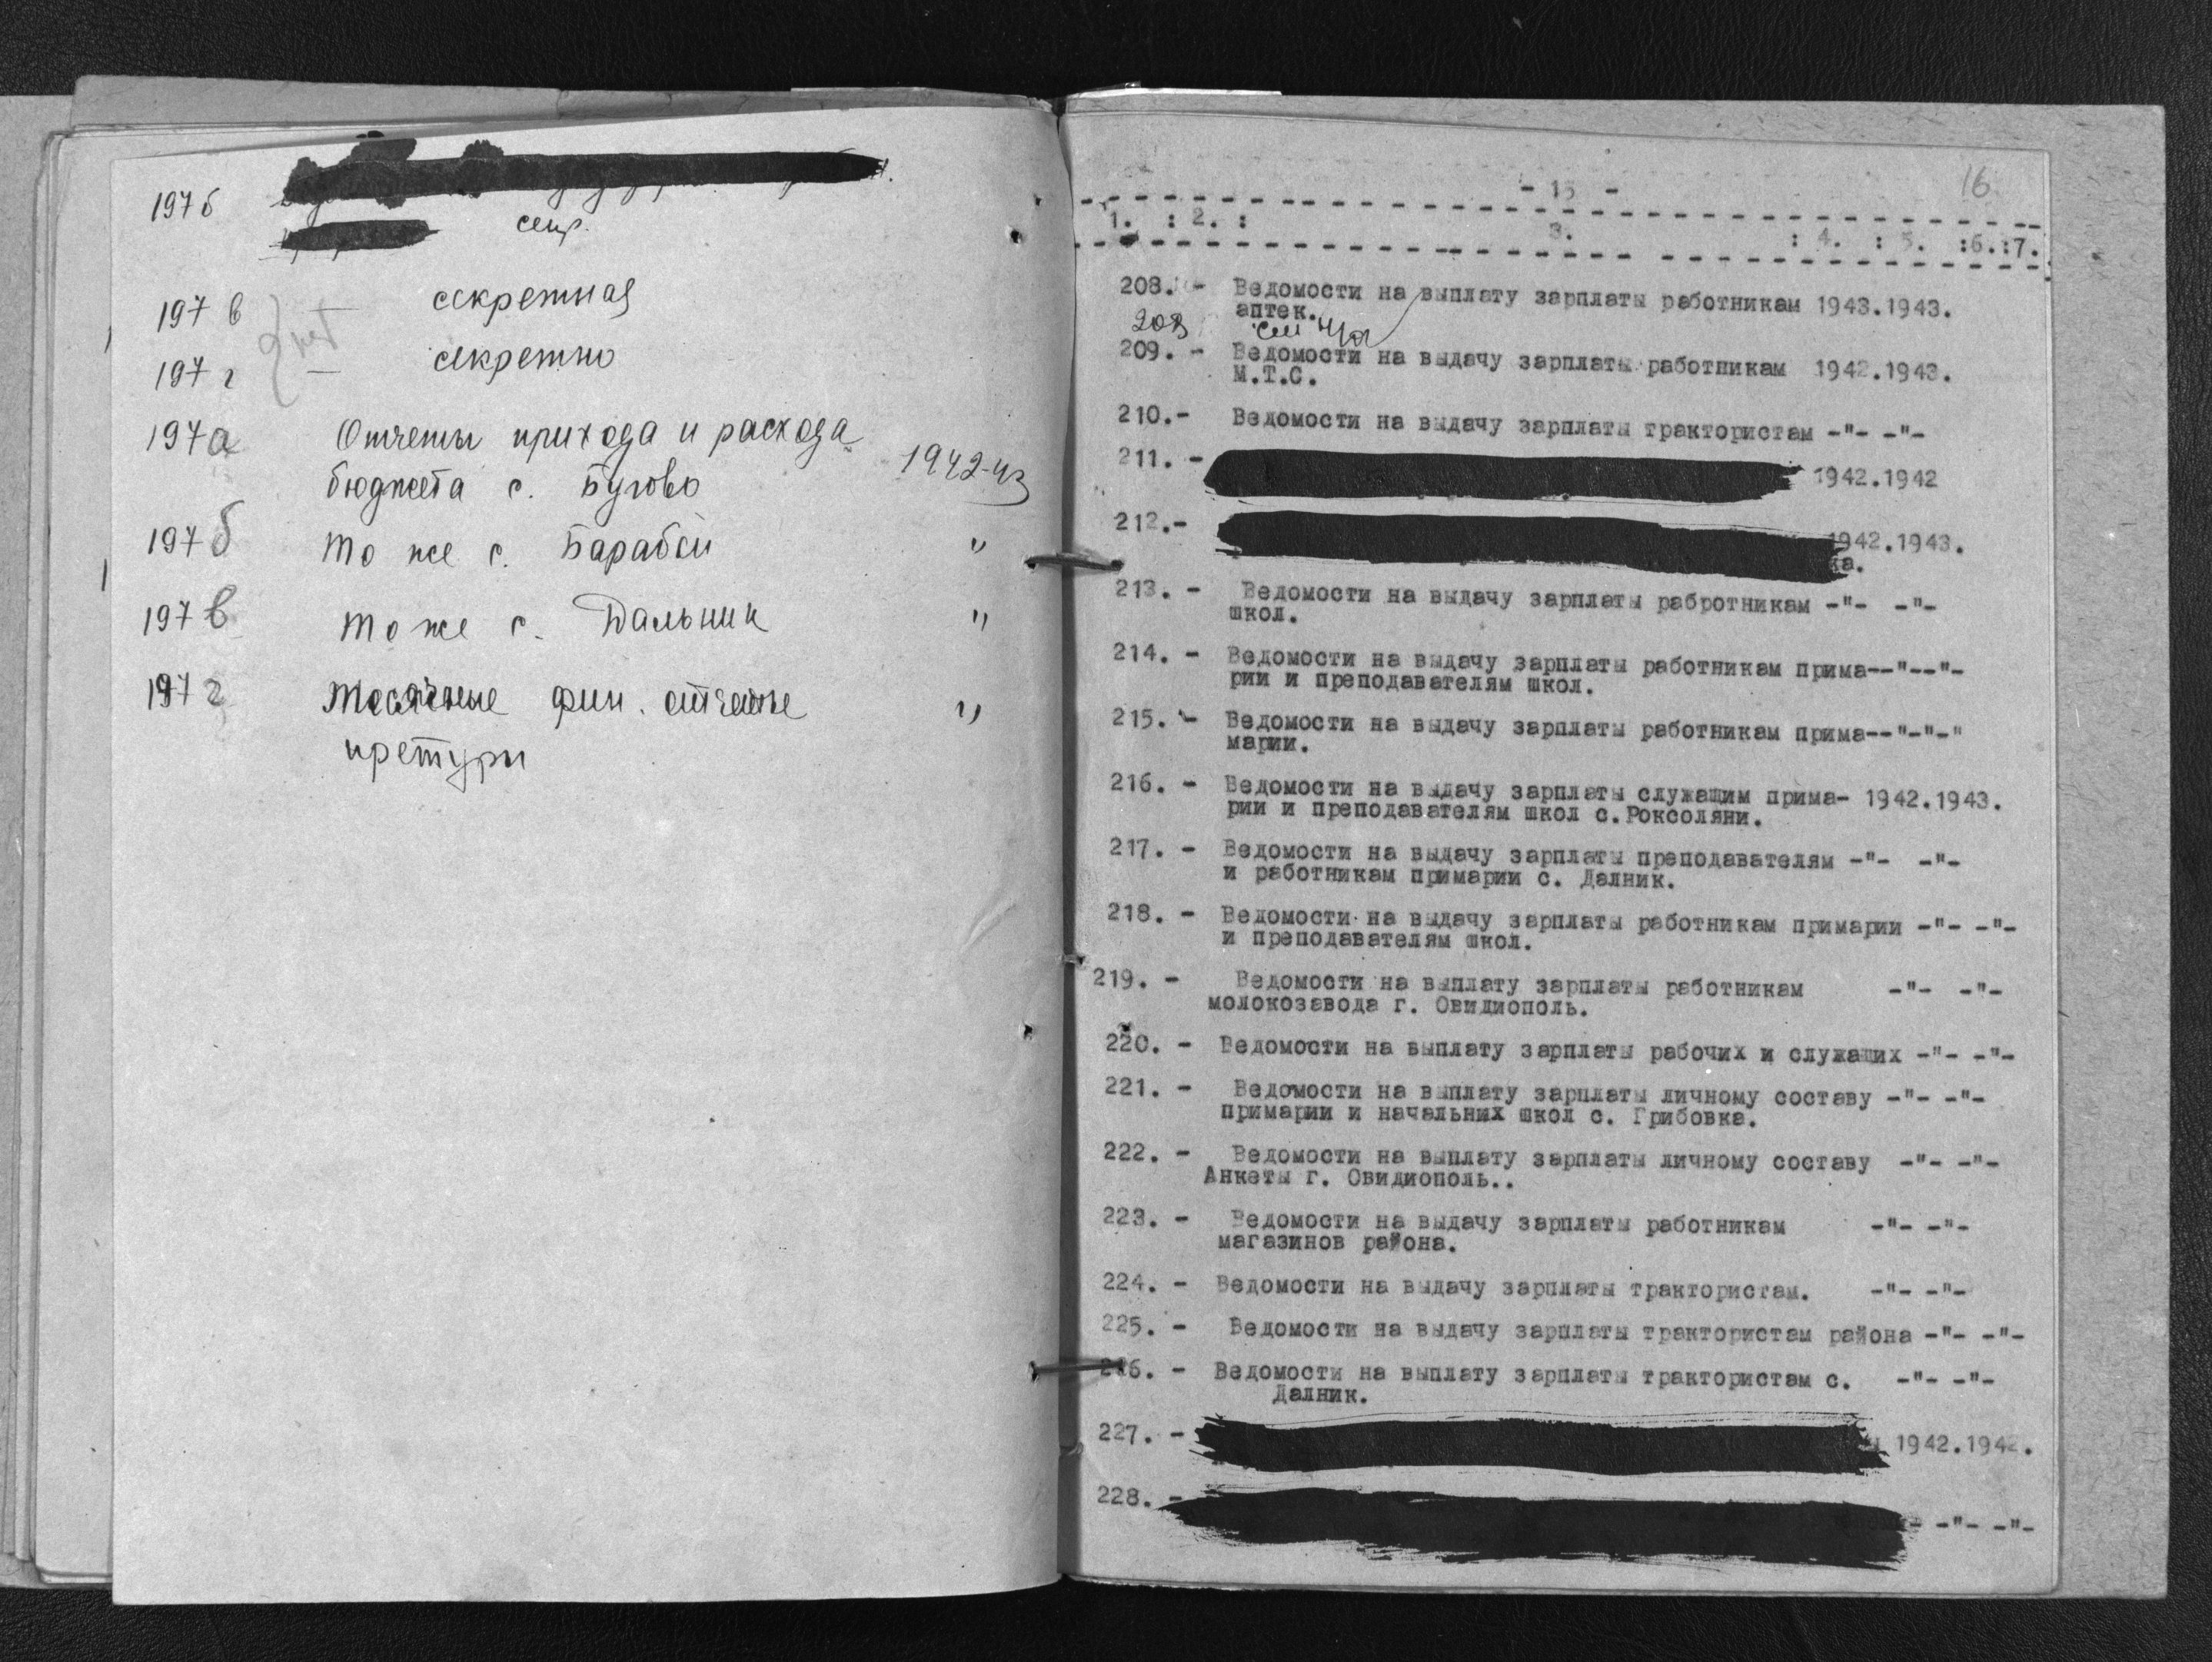 197 б
секр.
197 в — секретная
нет
197 г — секретно
197а Отчеты прихода и расхода
бюджета с. Бугово 1942-43
197б То же с. Барабой "
197в То же с. Дальник "
197г Месячные фин. отчеты "
претуры
- 15 - 16
1. : 2. : 3. : 4. : 5. :6.:7.
208. - Ведомости на выплату зарплаты работникам 1943.1943.
аптек.
209. - Ведомости на выдачу зарплаты работникам 1942.1943.
М.Т.С.
210.- Ведомости на выдачу зарплаты трактористам -"- -"-
211. - 1942.1942
212.- 1942.1943.
ка.
213. - Ведомости на выдачу зарплаты рабротникам -"- -"-
школ.
214. - Ведомости на выдачу зарплаты работникам прима--"--"-
рии и преподавателям школ.
215. - Ведомости на выдачу зарплаты работникам прима--"-"-"
марии.
216. - Ведомости на выдачу зарплаты служащим прима- 1942.1943.
рии и преподавателям школ с.Роксоляни.
217. - Ведомости на выдачу зарплаты преподавателям -"- -"-
и работникам примарии с. Далник.
218. - Ведомости на выдачу зарплаты работникам примарии -"- -"-
и преподавателям школ.
219. - Ведомости на выплату зарплаты работникам -"- -"-
молокозавода г. Овидиополь.
220. - Ведомости на выплату зарплаты рабочих и служащих -"- -"-
221. - Ведомости на выплату зарплаты личному составу -"- -"-
примарии и начальних школ с. Грибовка.
222. - Ведомости на выплату зарплаты личному составу -"- -"-
Анкеты г. Овидиополь..
223. - Ведомости на выдачу зарплаты работникам -"- -"-
магазинов района.
224. - Ведомости на выдачу зарплаты трактористам. -"- -"-
225. - Ведомости на выдачу зарплаты трактористам района -"- -"-
226. - Ведомости на выплату зарплаты трактористам с. -"- -"-
Далник.
227. - 1942.1942.
228. - -"- -"-